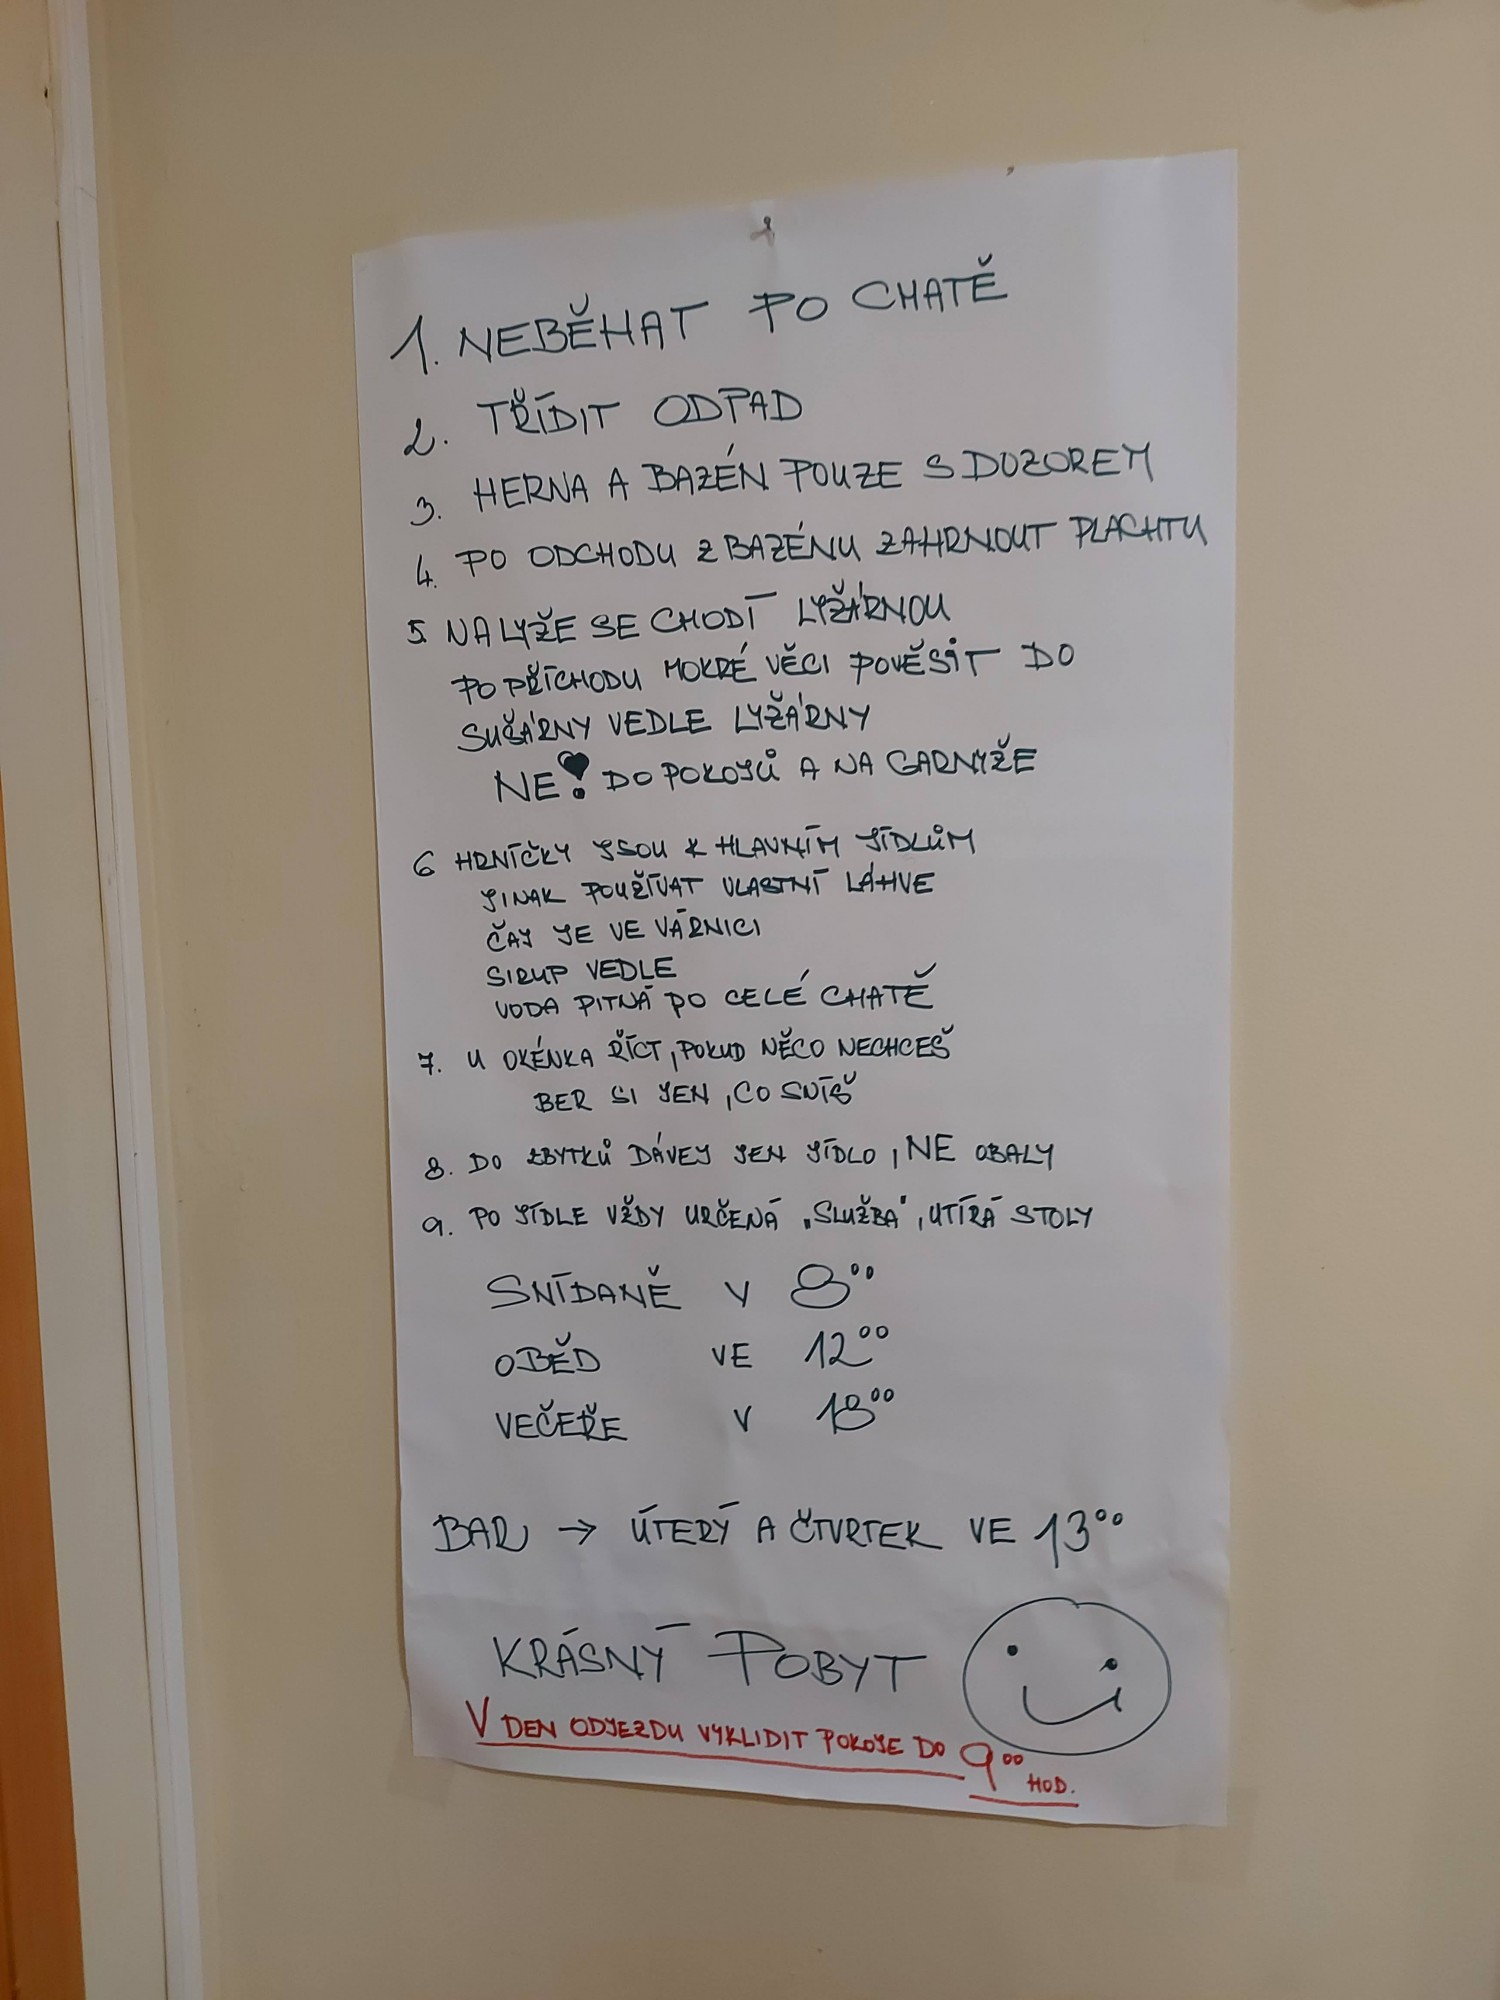 1. NEBĚHAT PO CHATĚ
2. TŘÍDIT ODPAD
3. HERNA A BAZÉN POUZE S DOZOREM
4. PO ODCHODU Z BAZÉNU ZAHRNOUT PLACHTU
5 NA LYŽE SE CHODÍ LYŽÁRNOU
PO PŘÍCHODU MOKRÉ VĚCI POVĚSIT DO
SUŠÁRNY VEDLE LYŽÁRNY
NE! DO POKOJŮ A NA GARNYŽE
6 HRNÍČKY JSOU K HLAVNÍM JÍDLŮM
JINAK POUŽÍVAT VLASTNÍ LÁHVE
ČAJ JE VE VÁRNICI
SIRUP VEDLE
VODA PITNÁ PO CELÉ CHATĚ
7. U OKÉNKA ŘÍCT, POKUD NĚCO NECHCEŠ
BER SI JEN, CO SNÍŠ
8. DO ZBYTKŮ DÁVEJ JEN JÍDLO, NE OBALY
9. PO JÍDLE VŽDY URČENÁ "SLUŽBA", UTÍRÁ STOLY
SNÍDANĚ V 8⁰⁰
OBĚD VE 12⁰⁰
VEČEŘE V 18⁰⁰
BAR → ÚTERÝ A ČTVRTEK VE 13⁰⁰
KRÁSNÝ POBYT
V DEN ODJEZDU VYKLIDIT POKOJE DO 9⁰⁰ HOD.